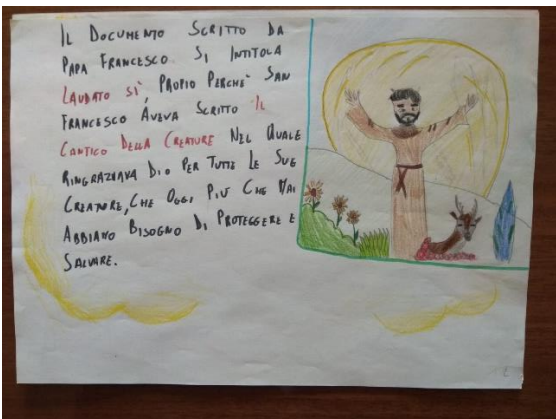 IL DOCUMENTO SCRITTO DA
PAPA FRANCESCO SI INTITOLA
LAUDATO SÌ, PROPIO PERCHÈ SAN
FRANCESCO AVEVA SCRITTO IL
CANTICO DELLA CREATURE NEL QUALE
RINGRAZIAVA DIO PER TUTTE LE SUE
CREATURE, CHE OGGI PIÙ CHE MAI
ABBIAMO BISOGNO DI PROTEGGERE E
SALVARE.
2